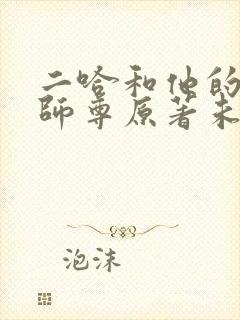 二哈和他的
師尊原著未
泡沫